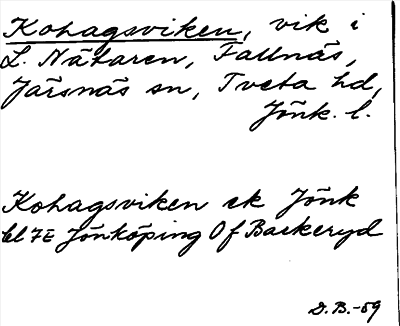 Kohagsviken, vik i
L. Nätaren, Fallnäs,
Järsnäs sn, Tveta hd,
Jönk. l.
Kohagsviken ek Jönk
bl 7E Jönköping Of Barkeryd
D.B.-59